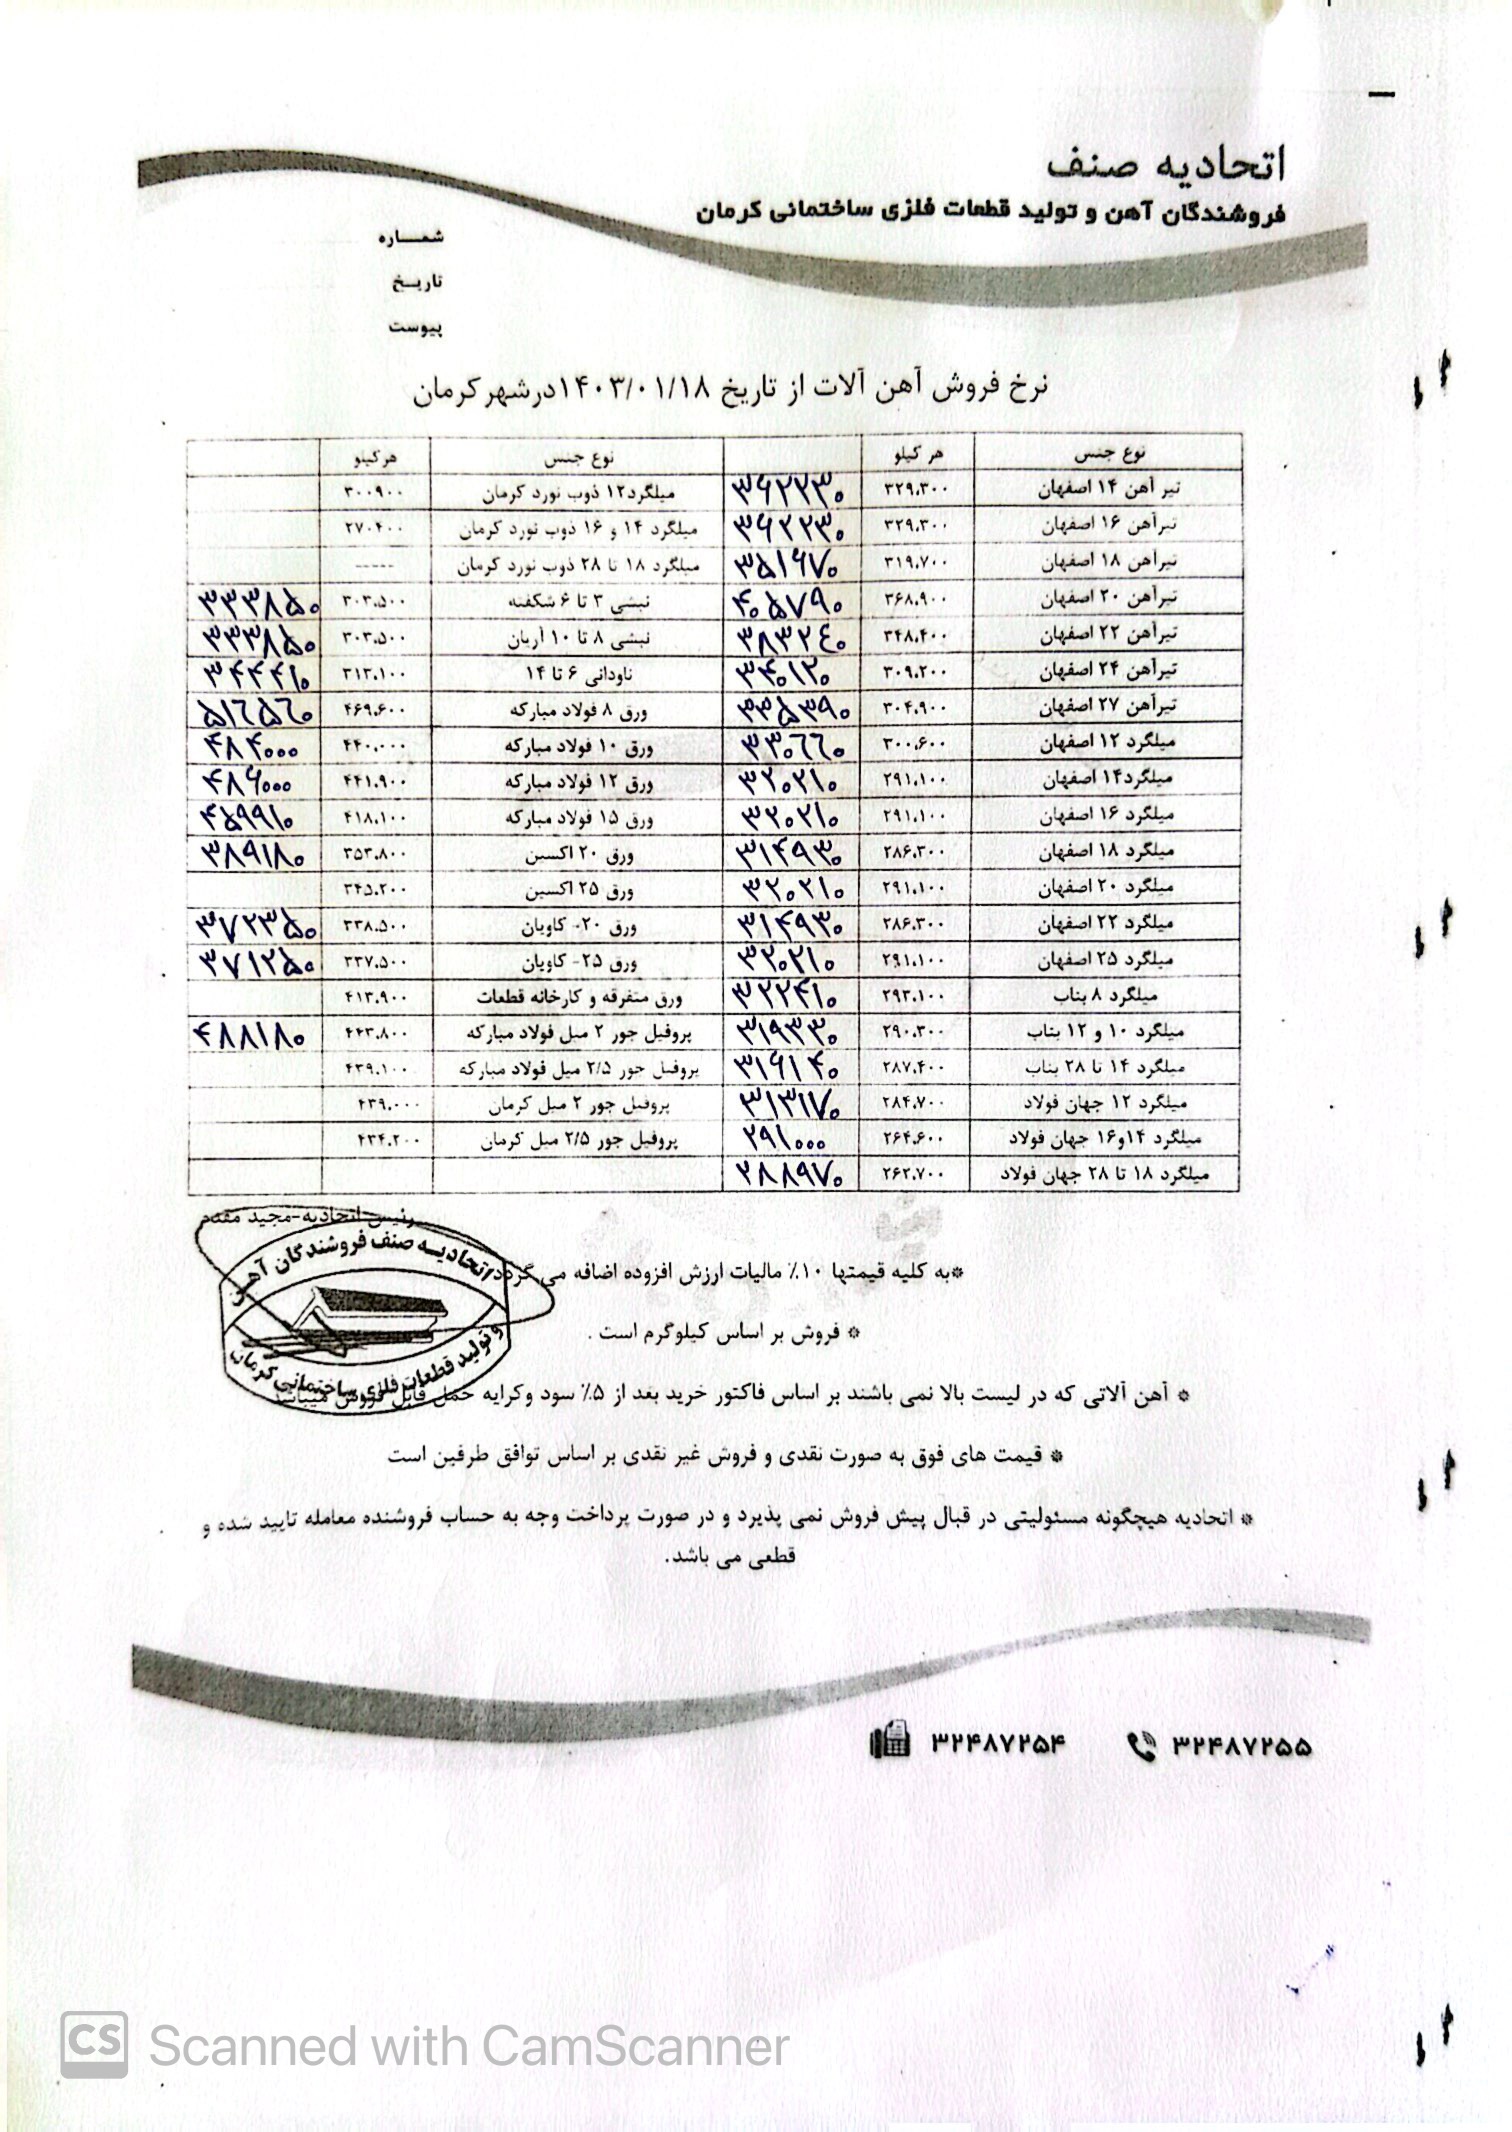 اتحادیه صنف
فروشندگان آهن و تولید قطعات فلزی ساختمانی کرمان
شمـــاره
تاریـخ
پیوست
نرخ فروش آهن آلات از تاریخ ۱۴۰۳/۰۱/۱۸درشهرکرمان
نوع جنس هر کیلو نوع جنس هرکیلو
تیر آهن ۱۴ اصفهان ۳۲۹.۳۰۰ ۳۶۲۲۳۰ میلگرد۱۲ ذوب نورد کرمان ۳۰۰.۹۰۰
تیرآهن ۱۶ اصفهان ۳۲۹.۳۰۰ ۳۶۲۲۳۰ میلگرد ۱۴ و ۱۶ ذوب نورد کرمان ۲۷۰.۴۰۰
تیرآهن ۱۸ اصفهان ۳۱۹.۷۰۰ ۳۵۱۶۷۰ میلگرد ۱۸ تا ۲۸ ذوب نورد کرمان -----
تیرآهن ۲۰ اصفهان ۳۶۸.۹۰۰ ۴۰۵۷۹۰ نبشی ۳ تا ۶ شکفته ۳۰۳.۵۰۰ ۳۳۳۸۵۰
تیرآهن ۲۲ اصفهان ۳۴۸.۴۰۰ ۳۸۳۲۴۰ نبشی ۸ تا ۱۰ آریان ۳۰۳.۵۰۰ ۳۳۳۸۵۰
تیرآهن ۲۴ اصفهان ۳۰۹.۲۰۰ ۳۴۰۱۲۰ ناودانی ۶ تا ۱۴ ۳۱۳.۱۰۰ ۳۴۴۴۱۰
تیرآهن ۲۷ اصفهان ۳۰۴.۹۰۰ ۳۳۵۳۹۰ ورق ۸ فولاد مبارکه ۴۶۹.۶۰۰ ۵۱۶۵۶۰
میلگرد ۱۲ اصفهان ۳۰۰.۶۰۰ ۳۳۰۶۶۰ ورق ۱۰ فولاد مبارکه ۴۴۰.۰۰۰ ۴۸۴۰۰۰
میلگرد۱۴ اصفهان ۲۹۱.۱۰۰ ۳۲۰۲۱۰ ورق ۱۲ فولاد مبارکه ۴۴۱.۹۰۰ ۴۸۶۰۰۰
میلگرد ۱۶ اصفهان ۲۹۱.۱۰۰ ۳۲۰۲۱۰ ورق ۱۵ فولاد مبارکه ۴۱۸.۱۰۰ ۴۵۹۹۱۰
میلگرد ۱۸ اصفهان ۲۸۶.۳۰۰ ۳۱۴۹۳۰ ورق ۲۰ اکسین ۳۵۳.۸۰۰ ۳۸۹۱۸۰
میلگرد ۲۰ اصفهان ۲۹۱.۱۰۰ ۳۲۰۲۱۰ ورق ۲۵ اکسین ۳۴۵.۲۰۰
میلگرد ۲۲ اصفهان ۲۸۶.۳۰۰ ۳۱۴۹۳۰ ورق ۲۰- کاویان ۳۳۸.۵۰۰ ۳۷۲۳۵۰
میلگرد ۲۵ اصفهان ۲۹۱.۱۰۰ ۳۲۰۲۱۰ ورق ۲۵- کاویان ۳۳۷.۵۰۰ ۳۷۱۲۵۰
میلگرد ۸ بناب ۲۹۳.۱۰۰ ۳۲۲۴۱۰ ورق متفرقه و کارخانه قطعات ۴۱۳.۹۰۰
میلگرد ۱۰ و ۱۲ بناب ۲۹۰.۳۰۰ ۳۱۹۳۳۰ پروفیل جور ۲ میل فولاد مبارکه ۴۴۳.۸۰۰ ۴۸۸۱۸۰
میلگرد ۱۴ تا ۲۸ بناب ۲۸۷.۴۰۰ ۳۱۶۱۴۰ پروفیل جور ۲/۵ میل فولاد مبارکه ۴۳۹.۱۰۰
میلگرد ۱۲ جهان فولاد ۲۸۴.۷۰۰ ۳۱۳۱۷۰ پروفیل جور ۲ میل کرمان ۴۳۹.۰۰۰
میلگرد ۱۴و۱۶ جهان فولاد ۲۶۴.۶۰۰ ۲۹۱۰۰۰ پروفیل جور ۲/۵ میل کرمان ۴۳۴.۲۰۰
میلگرد ۱۸ تا ۲۸ جهان فولاد ۲۶۲.۷۰۰ ۲۸۸۹۷۰
رئیس اتحادیه-مجید مقدم
اتحادیـه صنف فروشندگان آهـن
و تولید قطعات فلزی ساختمانی کرمان
*به کلیه قیمتها ۱۰٪ مالیات ارزش افزوده اضافه می گردد
* فروش بر اساس کیلوگرم است .
* آهن آلاتی که در لیست بالا نمی باشند بر اساس فاکتور خرید بعد از ۵٪ سود وکرایه حمل قابل فروش میباشد
* قیمت های فوق به صورت نقدی و فروش غیر نقدی بر اساس توافق طرفین است
* اتحادیه هیچگونه مسئولیتی در قبال پیش فروش نمی پذیرد و در صورت پرداخت وجه به حساب فروشنده معامله تایید شده و
قطعی می باشد.
۳۲۴۸۷۲۵۵ ۳۲۴۸۷۲۵۴
CS Scanned with CamScanner